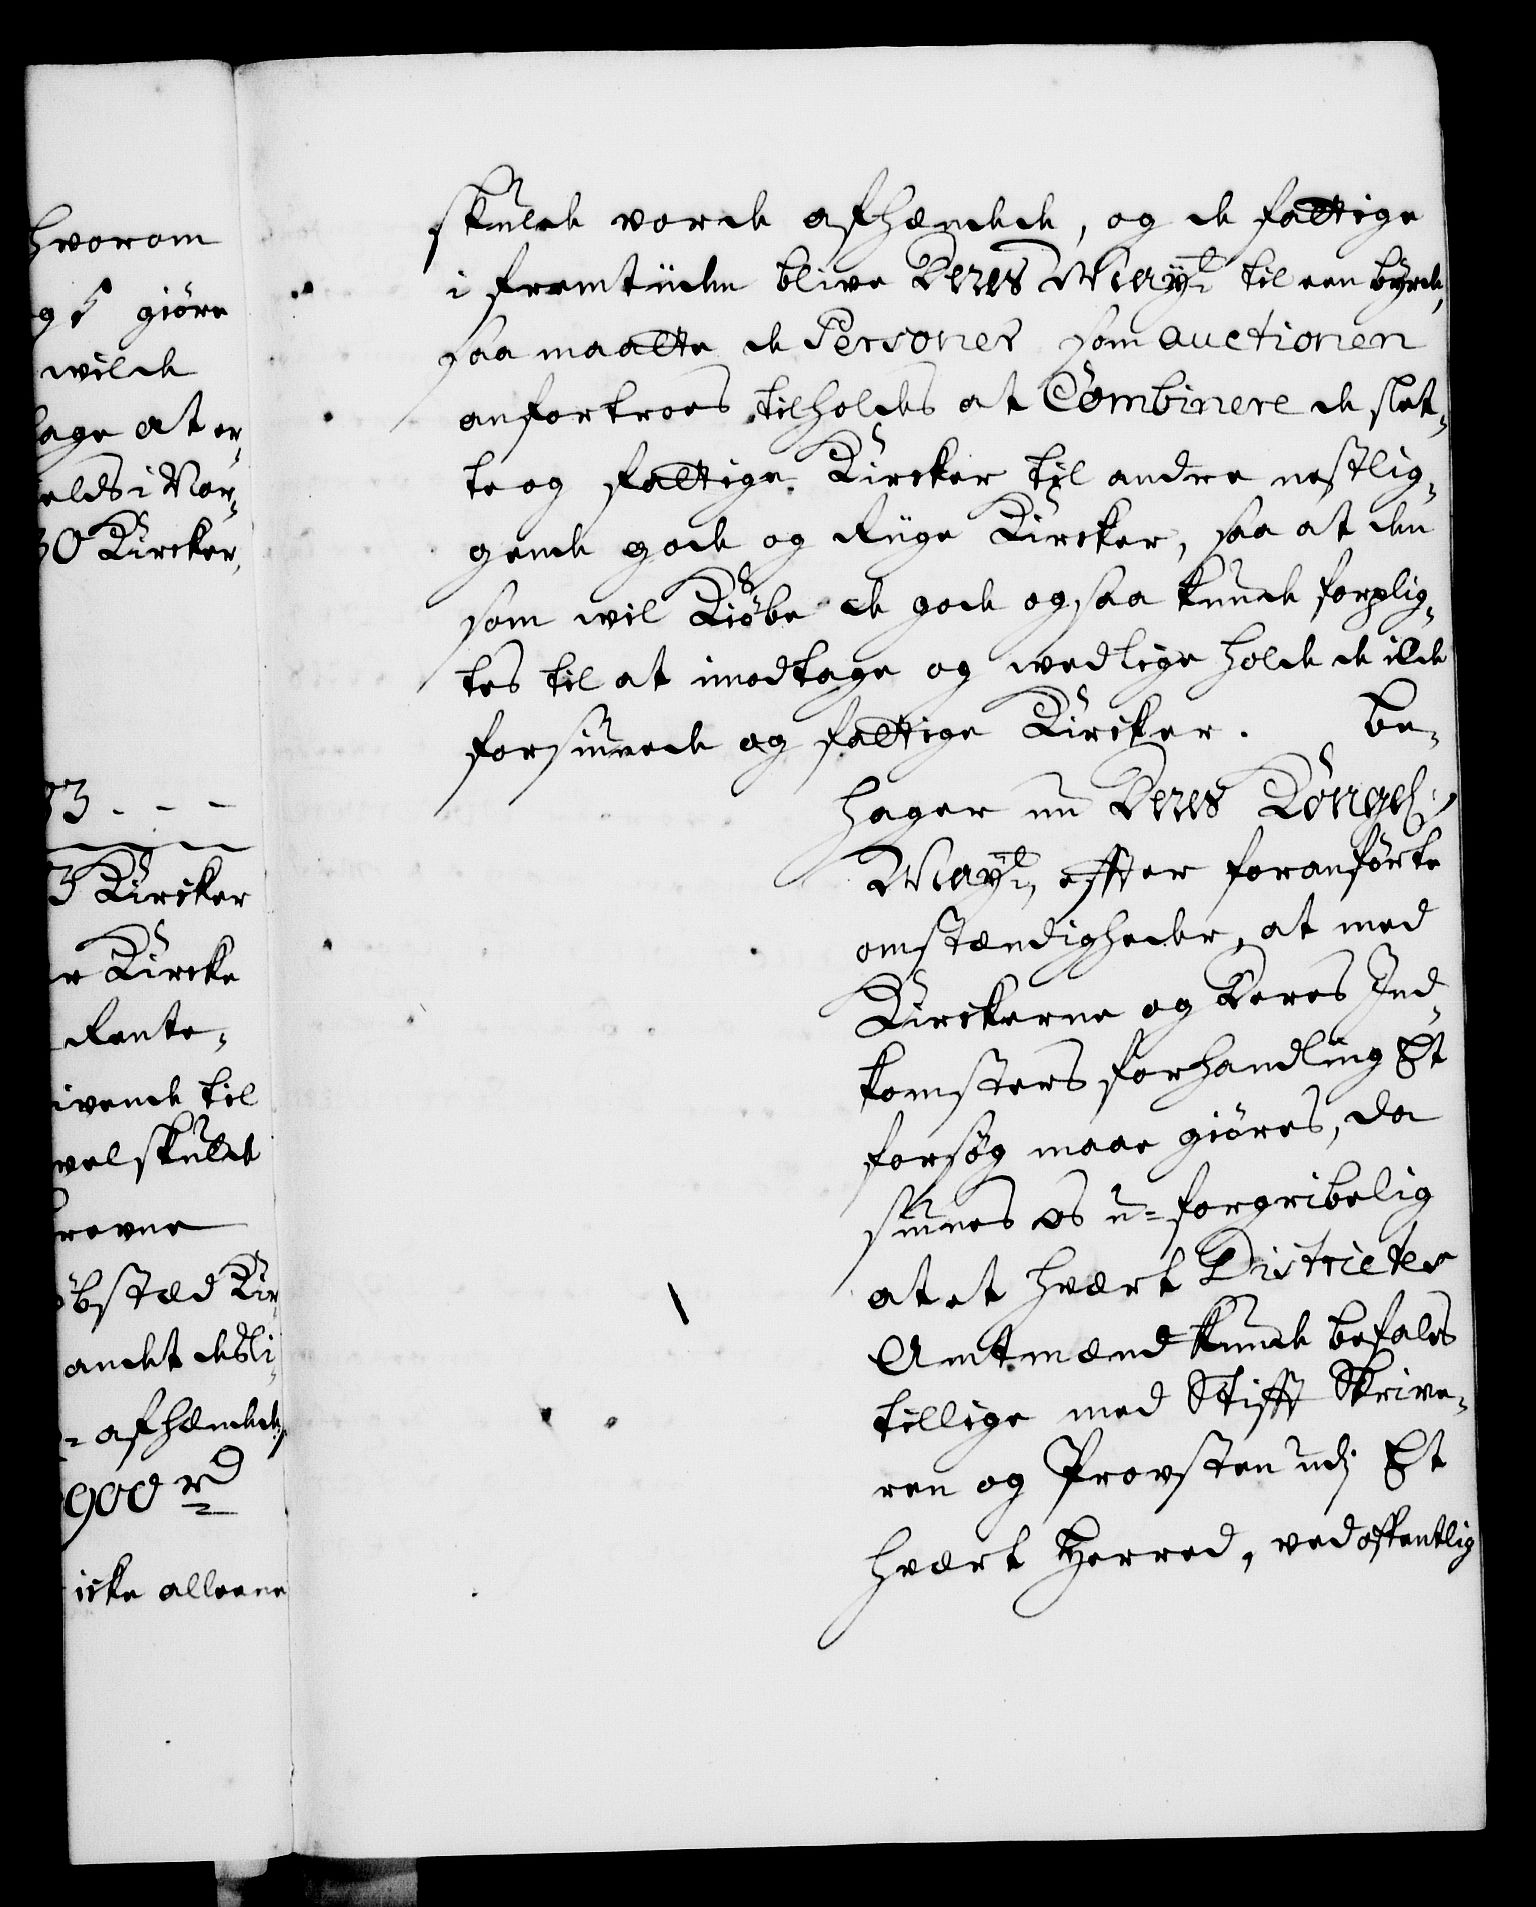 hvorom
giöre
wilde
lage at er-
elds i Nor-
30 Kircker,
33 - - -
3 Kircker
r Kircke
Rente-
ivende til
vel skulde
revne
öbstæd Kir-
andet desli-
= afhændede,
900 rd
icke alleene
skulde vorde afhændede, og de fattige
i fremtiiden blive Deres Mayt til een byrde,
saa maatte de Personer som auctionen
anfortroes, tilholdes at Combinere de slet-
te og fattige Kircker til andre nestlig-
gende gode og Riige Kircker, saa at den
som wil Kiøbe de gode ogsaa kunde forplig-
tes til at imodtage og wedlige holde de ilde
forsiunede og fattige Kircker. be-
hager nu Deres Kongel:
Mayt, effter foranförte
omstændigheder, at med
Kirckerne og deres Ind-
komsters forhandling Et
forsøg maae giöres, da
siunes os u=forgribelig
at et hvært Districtes
Amtmænd kunde befales
tillige med Stifft Skrive-
ren og Provsten udj Et
hvært Herred, ved offentlig